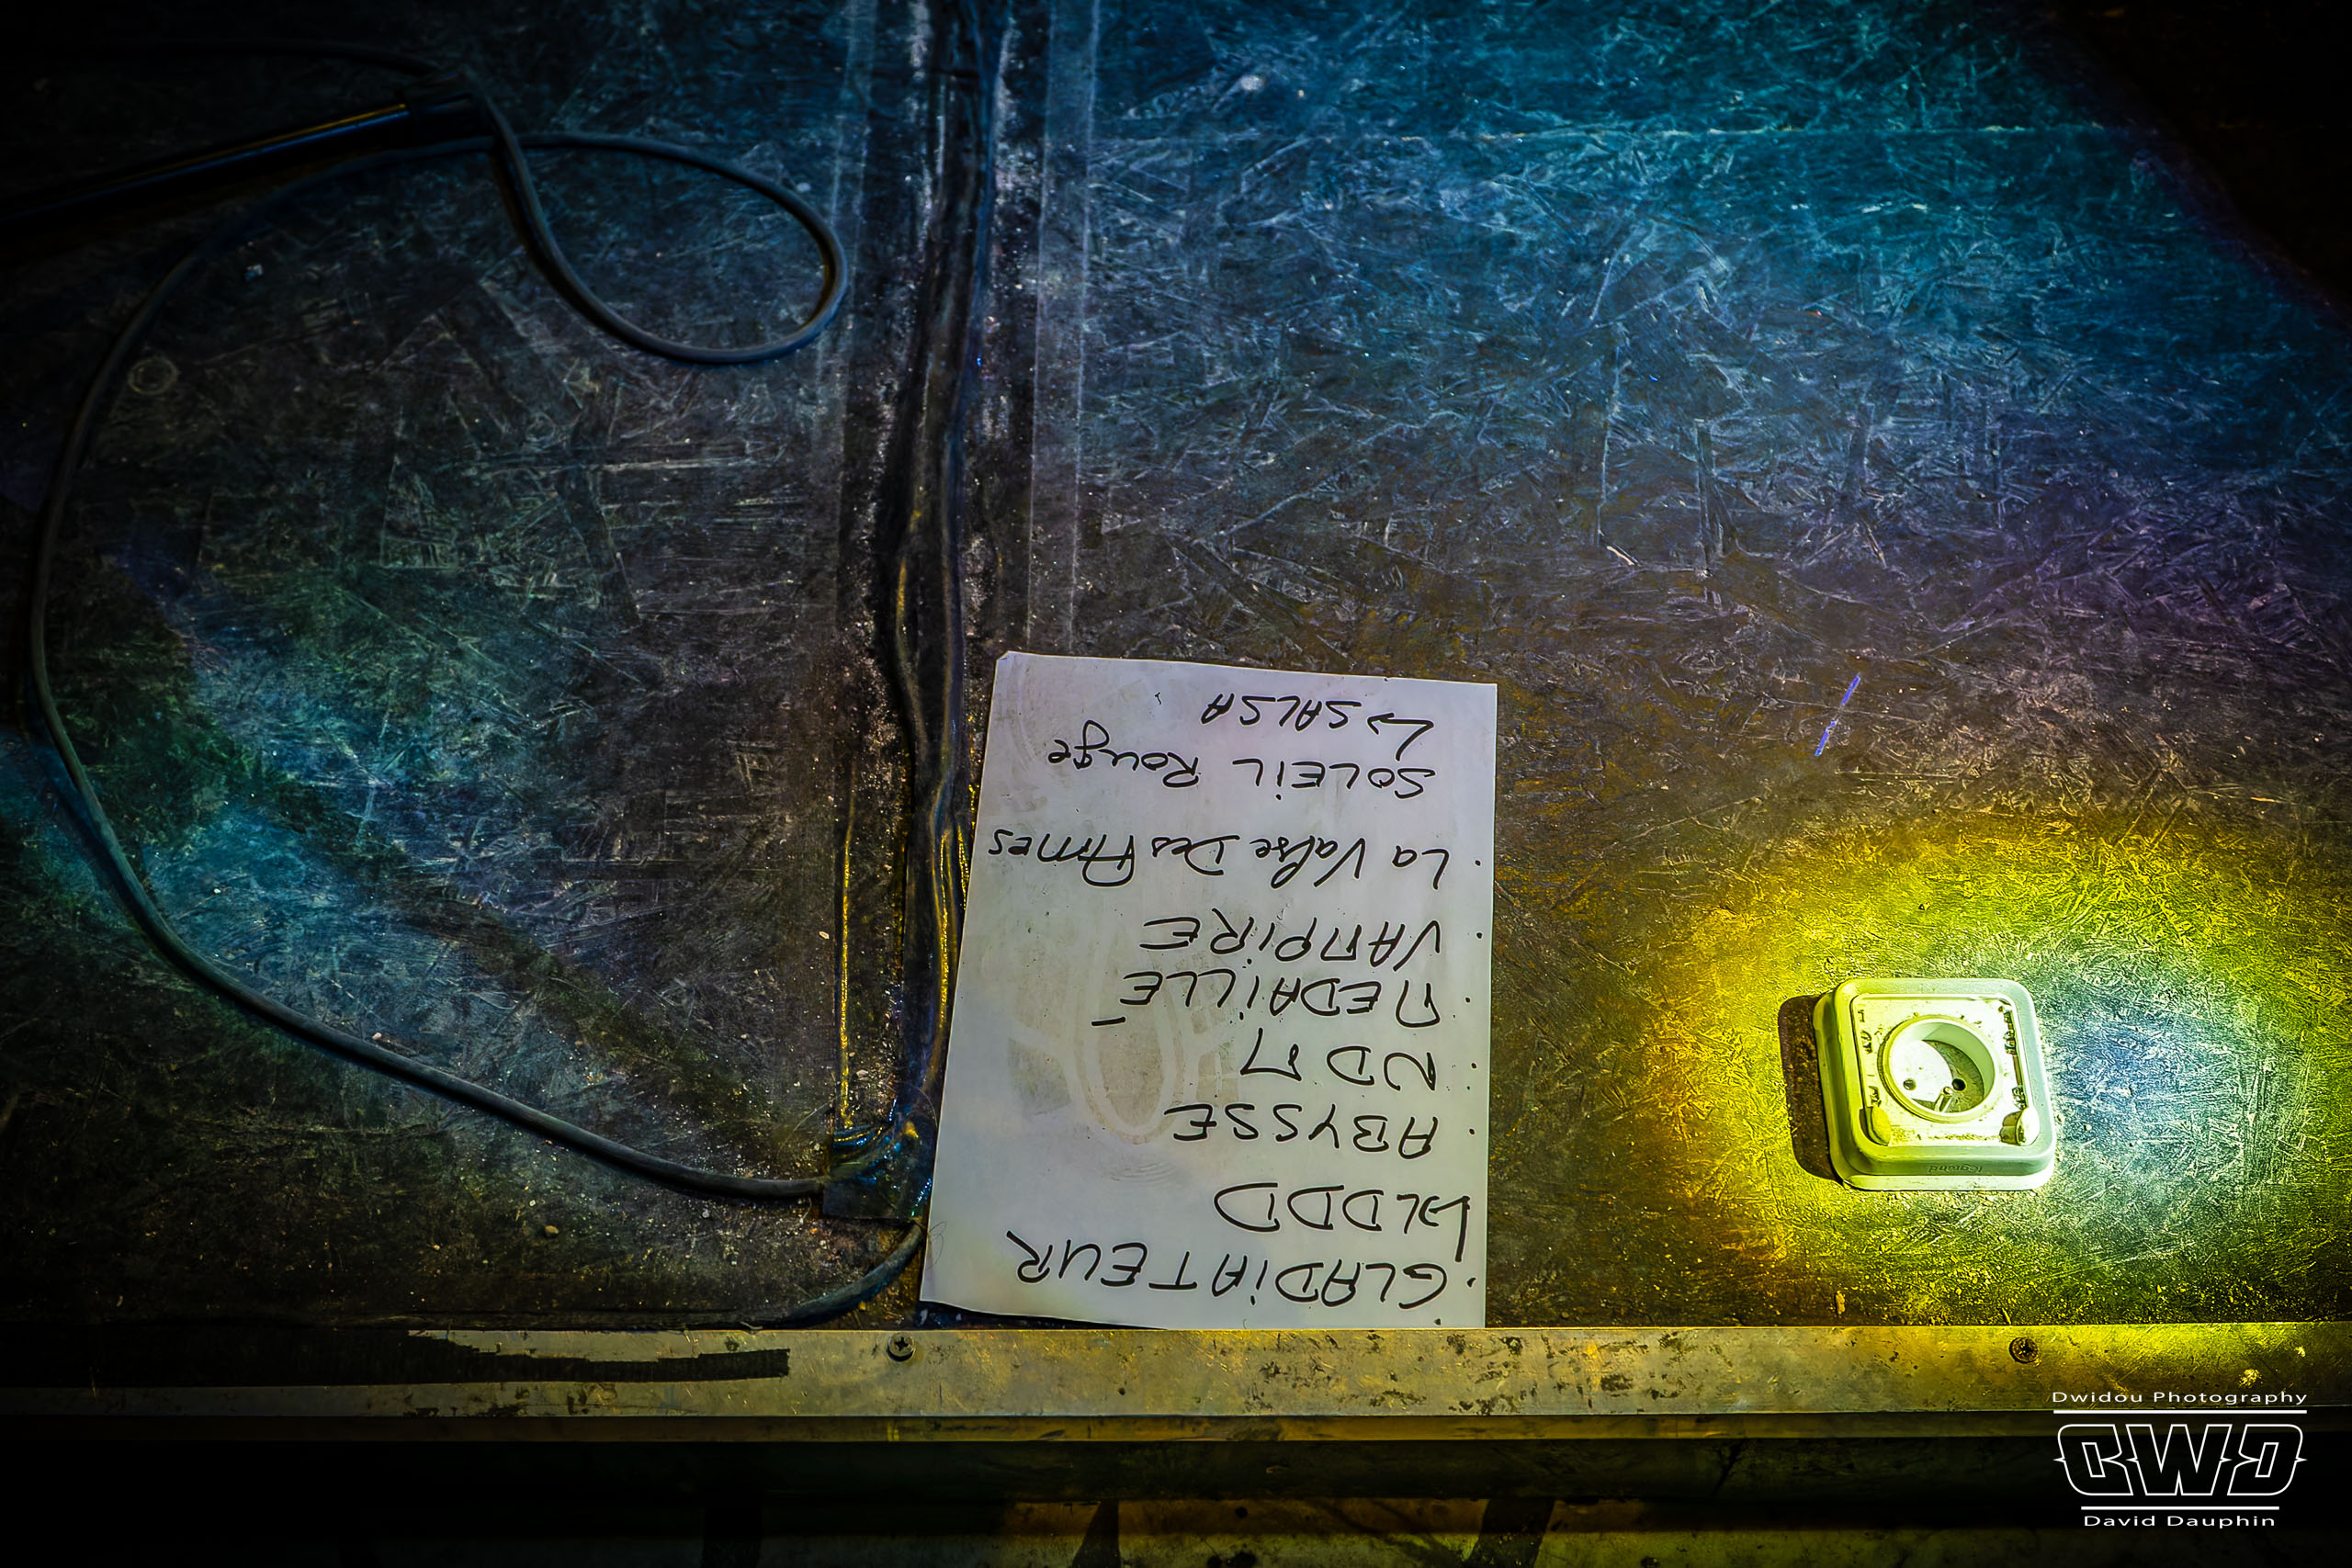 · GLADiATEUR
↳ LDDD
· ABYSSE
· NDM
· MEDAiLLE
· VAMPiRE
· La Valse Des Ames
SOLEiL Rouge
↳ SALSA
legrand
Dwidou Photography
DWD
David Dauphin